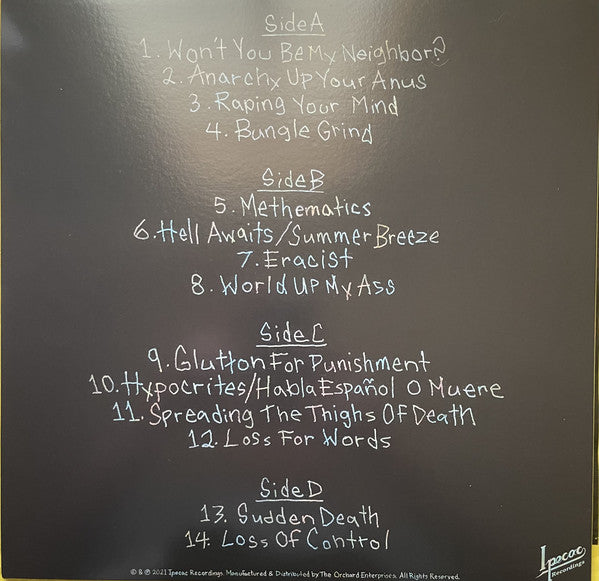 Side A
1. Won't You Be My Neighbor?
2. Anarchy Up Your Anus
3. Raping Your Mind
4. Bungle Grind
Side B
5. Methematics
6. Hell Awaits/Summer Breeze
7. Eracist
8. World Up My Ass
Side C
9. Glutton For Punishment
10. Hypocrites/Habla Español O Muere
11. Spreading The Thighs Of Death
12. Loss For Words
Side D
13. Sudden Death
14. Loss Of Control
© & ℗ 2021 Ipecac Recordings. Manufactured & Distributed by The Orchard Enterprises. All Rights Reserved.
Ipecac
Recordings